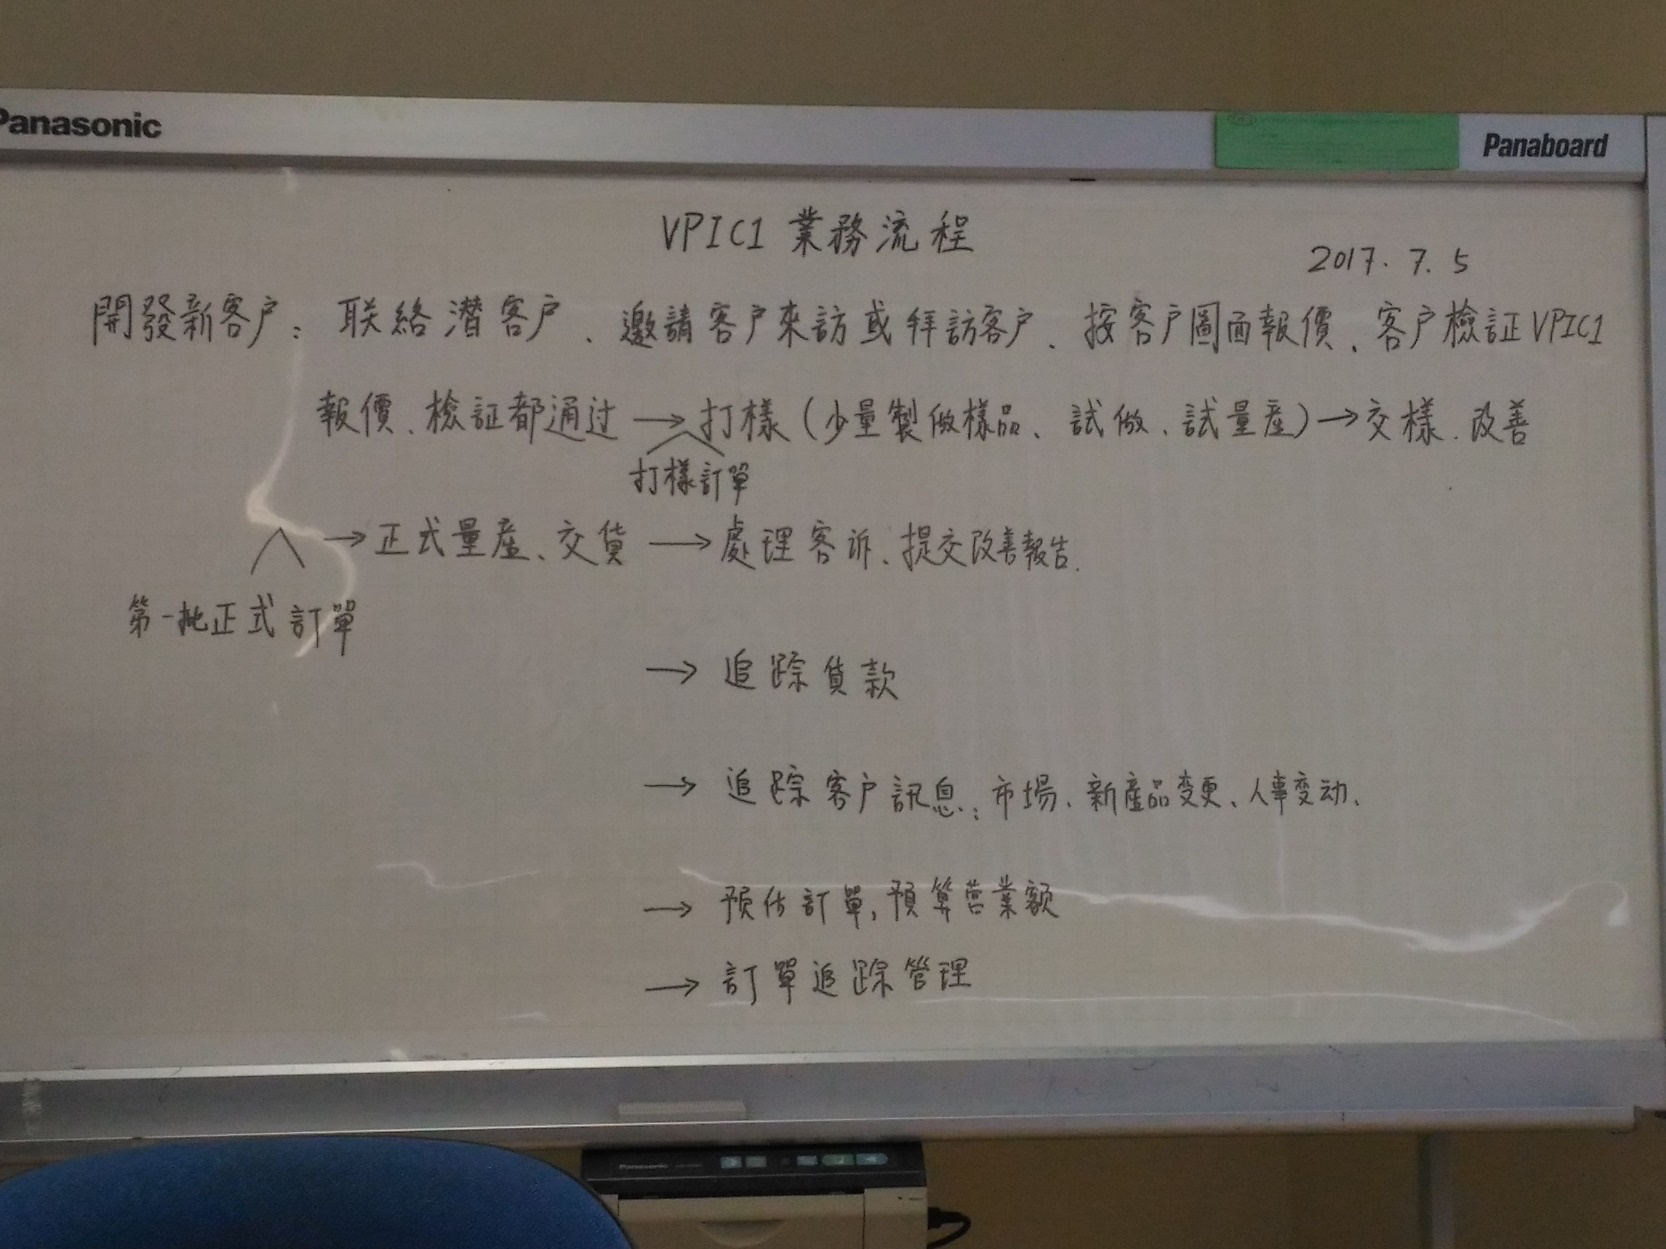 Panasonic
Panaboard
VPIC1 業務流程
2017. 7. 5
開發新客户: 联絡潛客户、邀請客户來訪或拜訪客户、按客户圖面報價、客户檢証VPIC1
報價、檢証都通过→打樣(少量製做樣品、試做、試量産)→交樣、改善
打樣訂單
→正式量産、交貨→處理客诉、提交改善報告.
第一批正式訂單
→追踪貨款
→追踪客户訊息: 市場、新產品变更、人事变动、
→预估訂單, 預算营業額
→訂單追踪管理
Panasonic